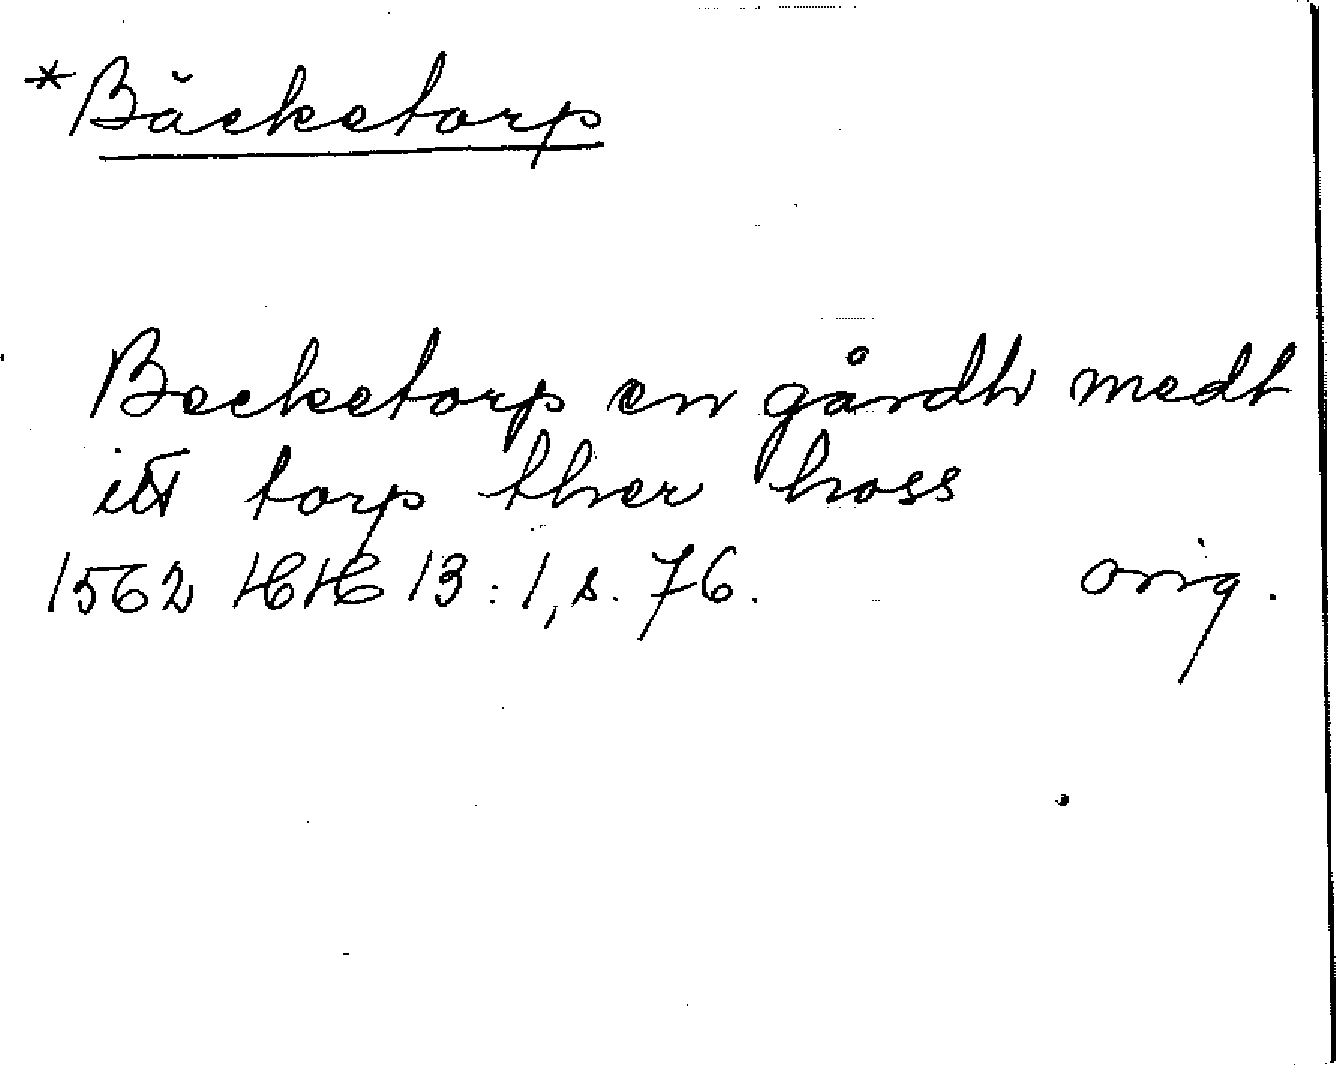 *Bäcketorp
Becketorp en gårdh medt
itt torp ther hoss
1562 HH 13:1, s. 76. orig.